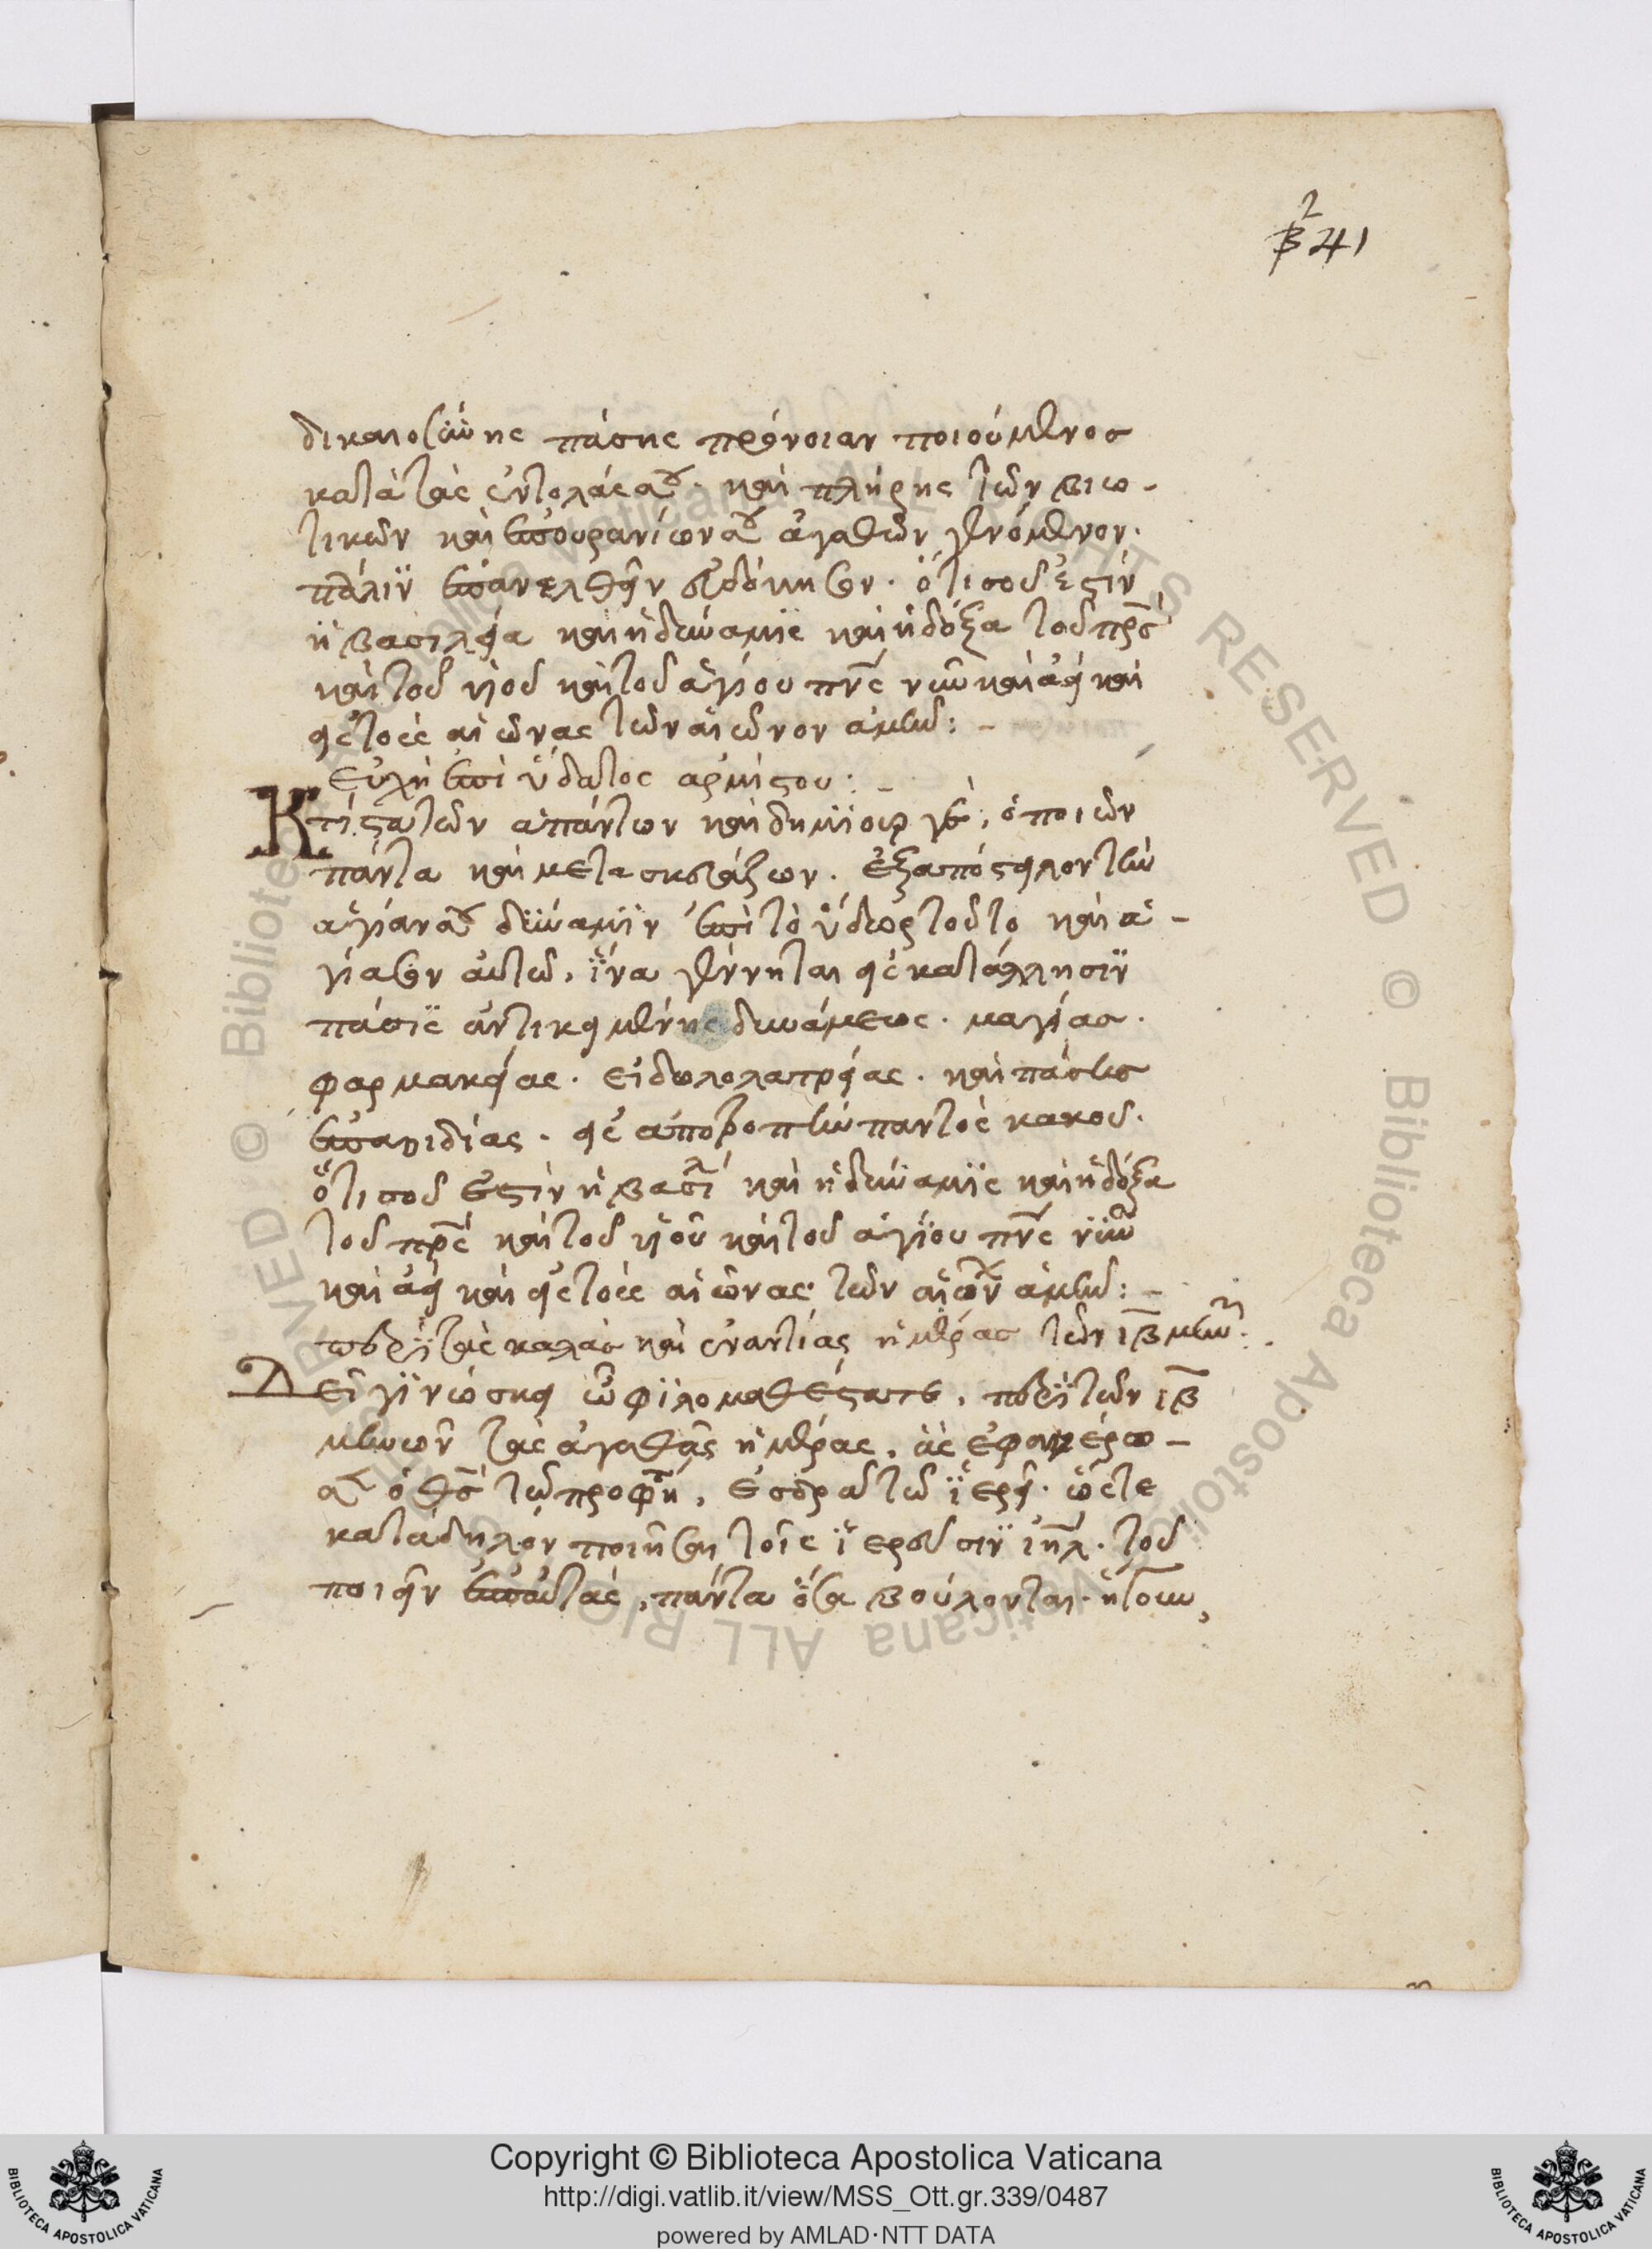 2
β 241
δικαιοσύνης πάσης πρόνοιαν ποιούμενος
κατὰ τὰς ἐντολάς σου· καὶ πλήρης τῶν βιω-
τικῶν καὶ ἐπουρανίων σου ἀγαθῶν γενόμενον·
πάλιν ἐπανελθεῖν εὐδόκησεν· ὅτι σοῦ ἐστὶν
ἡ βασιλεία καὶ ἡ δύναμις καὶ ἡ δόξα τοῦ πρς
καὶ τοῦ υἱοῦ καὶ τοῦ ἁγίου πνς νῦν καὶ ἀεὶ καὶ
εἰς τοὺς αἰῶνας τῶν αἰώνον ἀμήν: -
Εὐχὴ ἐπὶ ὕδατος αρμίστου: -
Κτίστα τῶν ἁπάντων καὶ δημιουργέ, ὁ ποιῶν
πάντα καὶ μετασκευάζων. ἐξαπόστειλον τὴν
ἁγίαν σου δύναμιν ἐπὶ τὸ ὕδωρ τοῦτο καὶ ἁ-
γίασεν αὐτῶ, ἵνα γένηται εἰς κατάλλησιν
πάσις ἀντικειμένης δυνάμεως. μαγείας.
φαρμακείας. εἰδωλολατρείας. καὶ πάσης
ἐπαοιδίας. εἰς ἀποτροπὴν παντὸς κακοῦ.
ὅτι σοῦ ἐστὶν ἡ βασιλ καὶ ἡ δύναμις καὶ ἡ δόξα
τοῦ πρς καὶ τοῦ υἱοῦ καὶ τοῦ ἁγίου πνς νῦν
καὶ ἀεὶ καὶ εἰς τοὺς αἰῶνας τῶν αἰών ἀμήν: -
περὶ τὰς καλὰς καὶ ἐναντίας ἡμέρας τῶν ιβ μην:.
Δεῖ γινώσκει ὦ φιλομαθέστατε, περὶ τῶν ιβ
μηνῶν τὰς ἀγαθὰς ἡμέρας, ἃς ἐφανέρω-
σεν ὁ θς τῶ προφήτη, ἐσδρα τῶ ἱερεῖ. ὥστε
κατάδηλον ποιῆσαι τοῖς ἱερεῦσιν ιηλ. τοῦ
ποιεῖν ἐπ' αὐτὰς, πάντα ὅσα βούλονται. ἤτουν,
Copyright © Biblioteca Apostolica Vaticana
http://digi.vatlib.it/view/MSS_Ott.gr.339/0487
powered by AMLAD·NTT DATA